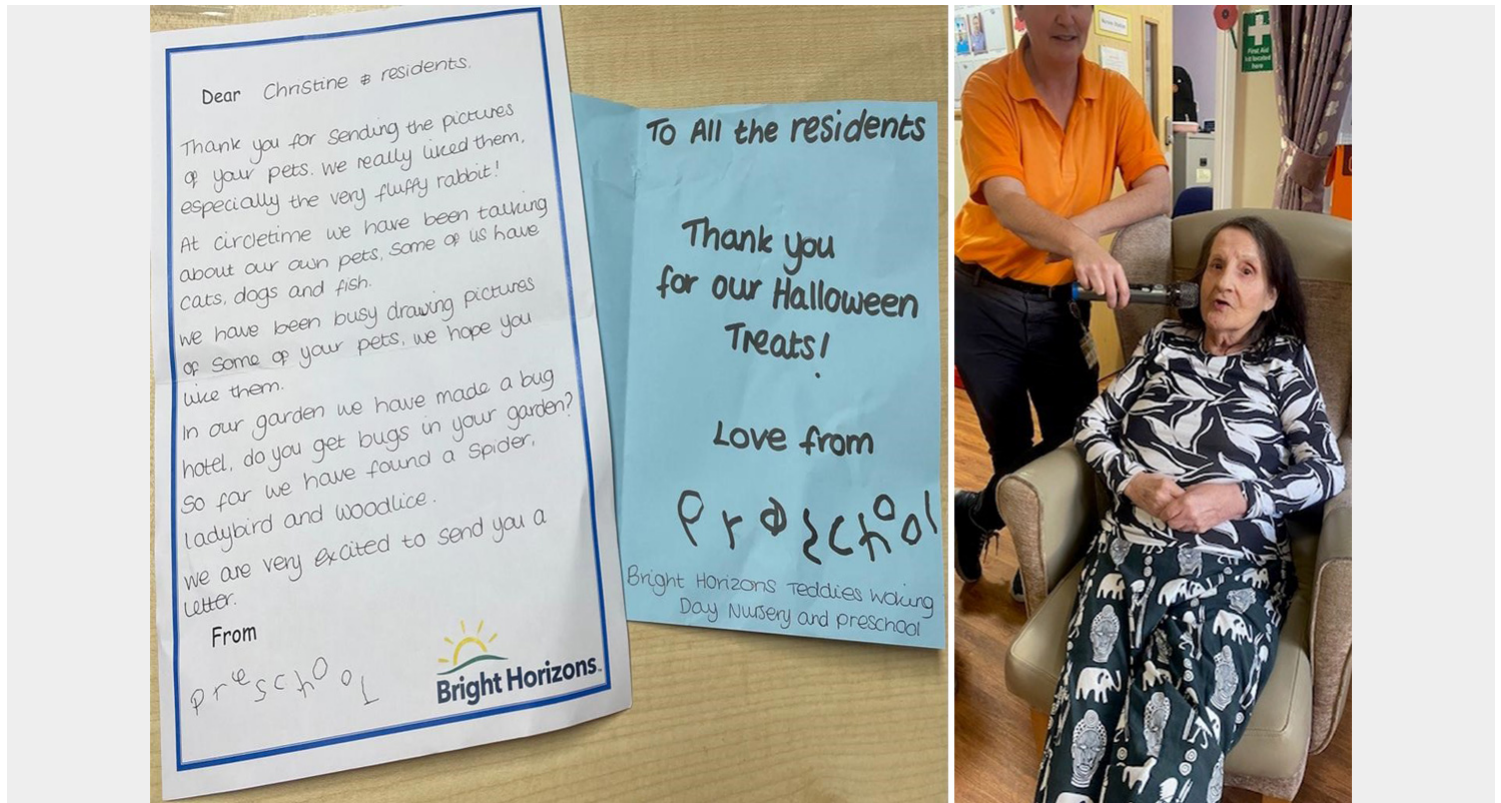 Dear Christine & residents.
Thank you for sending the pictures
of your pets. We really liked them,
especially the very fluffy rabbit!
At circletime we have been talking
about our own pets, some of us have
cats, dogs and fish.
We have been busy drawing pictures
of some of your pets, we hope you
like them.
In our garden we have made a bug
hotel, do you get bugs in your garden?
So far we have found a spider,
ladybird and woodlice.
We are very excited to send you a
letter.
From
preschool
Bright Horizons
To All the residents
Thank you
for our Halloween
Treats!
Love from
Preschool
Bright Horizons Teddies Woking
Day Nursery and preschool
First Aid
kit located
here